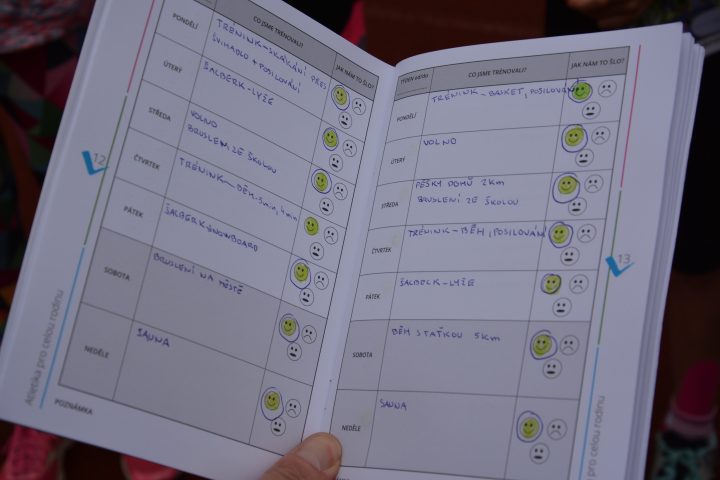 CO JSME TRÉNOVALI?
JAK NÁM TO ŠLO?
PONDĚLÍ
TRÉNINK-SKÁKÁNÍ PŘES
ŠVIHADLO + POSILOVÁNÍ
ÚTERÝ
ŠALBERK-LYŽE
STŘEDA
VOLNO
BRUSLENÍ ZE ŠKOLOU
ČTVRTEK
TRÉNINK-BĚH-5min, 4min
PÁTEK
ŠALBERK-SNOWBOARD
SOBOTA
BRUSLENÍ NA MĚSTĚ
NEDĚLE
SAUNA
POZNÁMKA
12
Atletika pro celou rodinu
CO JSME TRÉNOVALI?
JAK NÁM TO ŠLO?
PONDĚLÍ
TRÉNINK-BASKET, POSILOVÁNÍ
ÚTERÝ
VOLNO
STŘEDA
PĚŠKY DOMŮ 2km
BRUSLENÍ ZE ŠKOLOU
ČTVRTEK
TRÉNINK-BĚH, POSILOVÁNÍ
PÁTEK
ŠALBERK-LYŽE
SOBOTA
BĚH S TAŤKOU 5km
NEDĚLE
SAUNA
13
pro celou rodinu